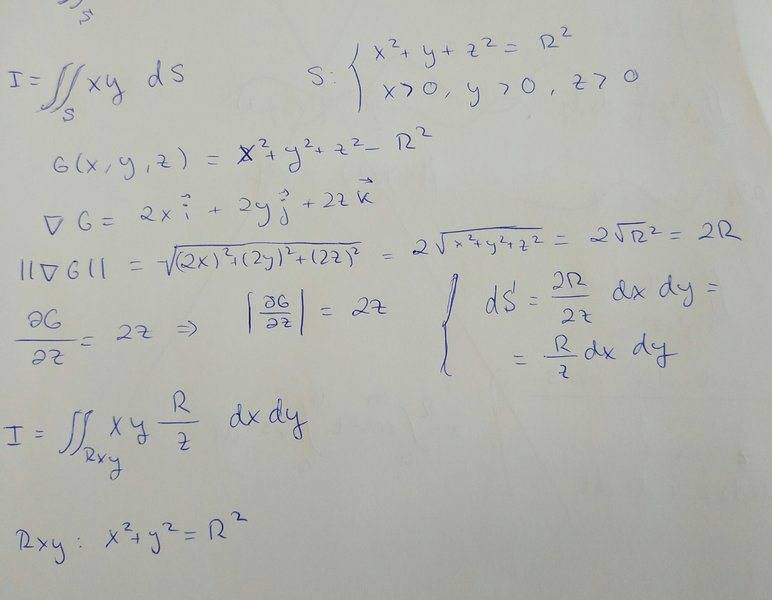 S
I = ∬_S xy dS    S: { x² + y + z² = R²
x>0, y>0, z>0
G(x, y, z) = x² + y² + z² − R²
∇G = 2x i⃗ + 2y j⃗ + 2z k⃗
||∇G|| = √((2x)² + (2y)² + (2z)²) = 2√(x² + y² + z²) = 2√R² = 2R
∂G/∂z = 2z ⇒ |∂G/∂z| = 2z    { dS = 2R/2z dx dy =
= R/z dx dy
I = ∬_Rxy xy R/z dx dy
Rxy: x² + y² = R²